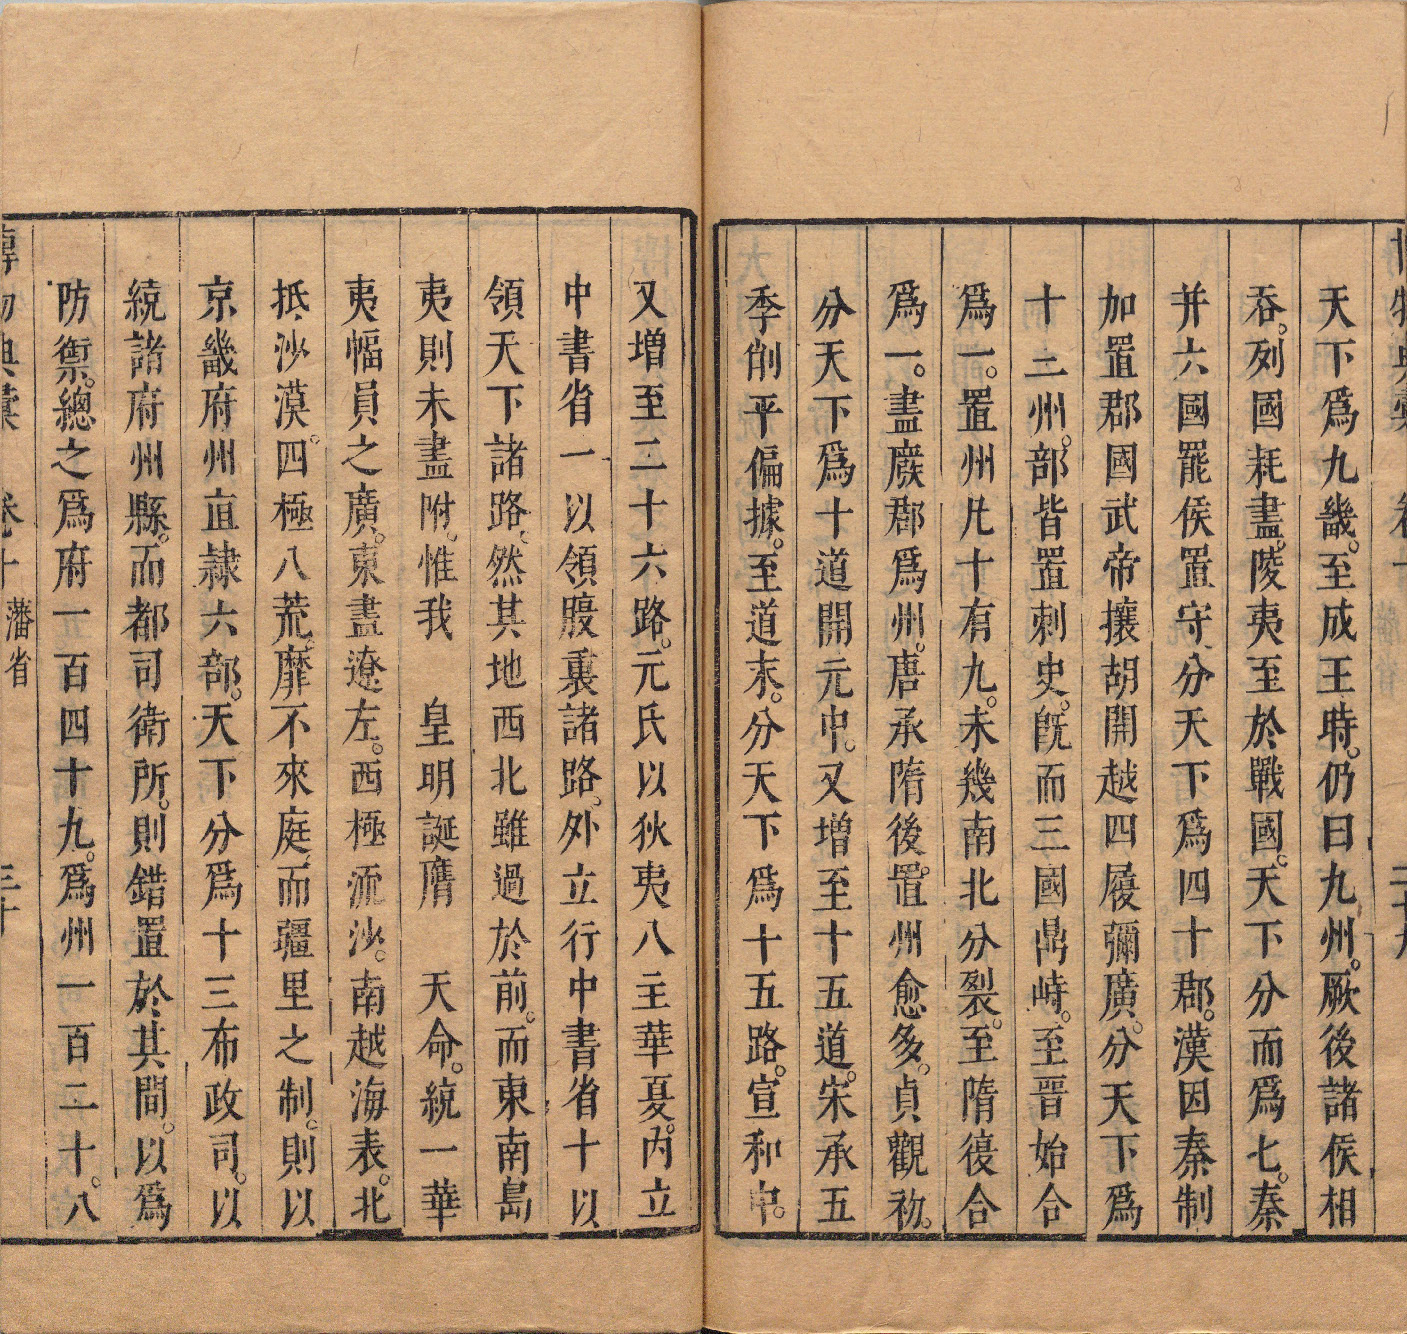 天下爲九畿。至成王時。仍曰九州。厥後諸侯相
吞。列國耗盡。陵夷至於戰國。天下分而爲七。秦
并六國罷侯置守分天下爲四十郡。漢因秦制
加置郡國武帝攘胡開越四履彌廣。分天下爲
十二州。部皆置刺史。旣而三國鼎峙。至晉始合
爲一。置州凡十有九。未幾南北分裂。至隋復合
爲一。盡廢郡爲州。唐承隋後。置州愈多。貞觀初。
分天下爲十道開元中。又增至十五道。宋承五
季削平偏據。至道末。分天下爲十五路。宣和中。
又增至二十六路。元氏以狄夷入主華夏。內立
中書省一以領腹裏諸路。外立行中書省十以
領天下諸路、然其地西北雖過於前。而東南島
夷則未盡附。惟我　皇明誕膺　天命。統一華
夷幅員之廣。東盡遼左。西極流沙。南越海表。北
抵沙漠。四極八荒。靡不來庭。而疆里之制。則以
京畿府州直隷六部。天下分爲十三布政司。以
統諸府州縣。而都司衛所。則錯置於其間。以爲
防禦。總之爲府一百四十九。爲州一百二十。八
博物典彙　卷十　藩省　三十